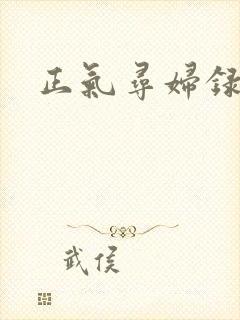 正氣尋婦録
武侯